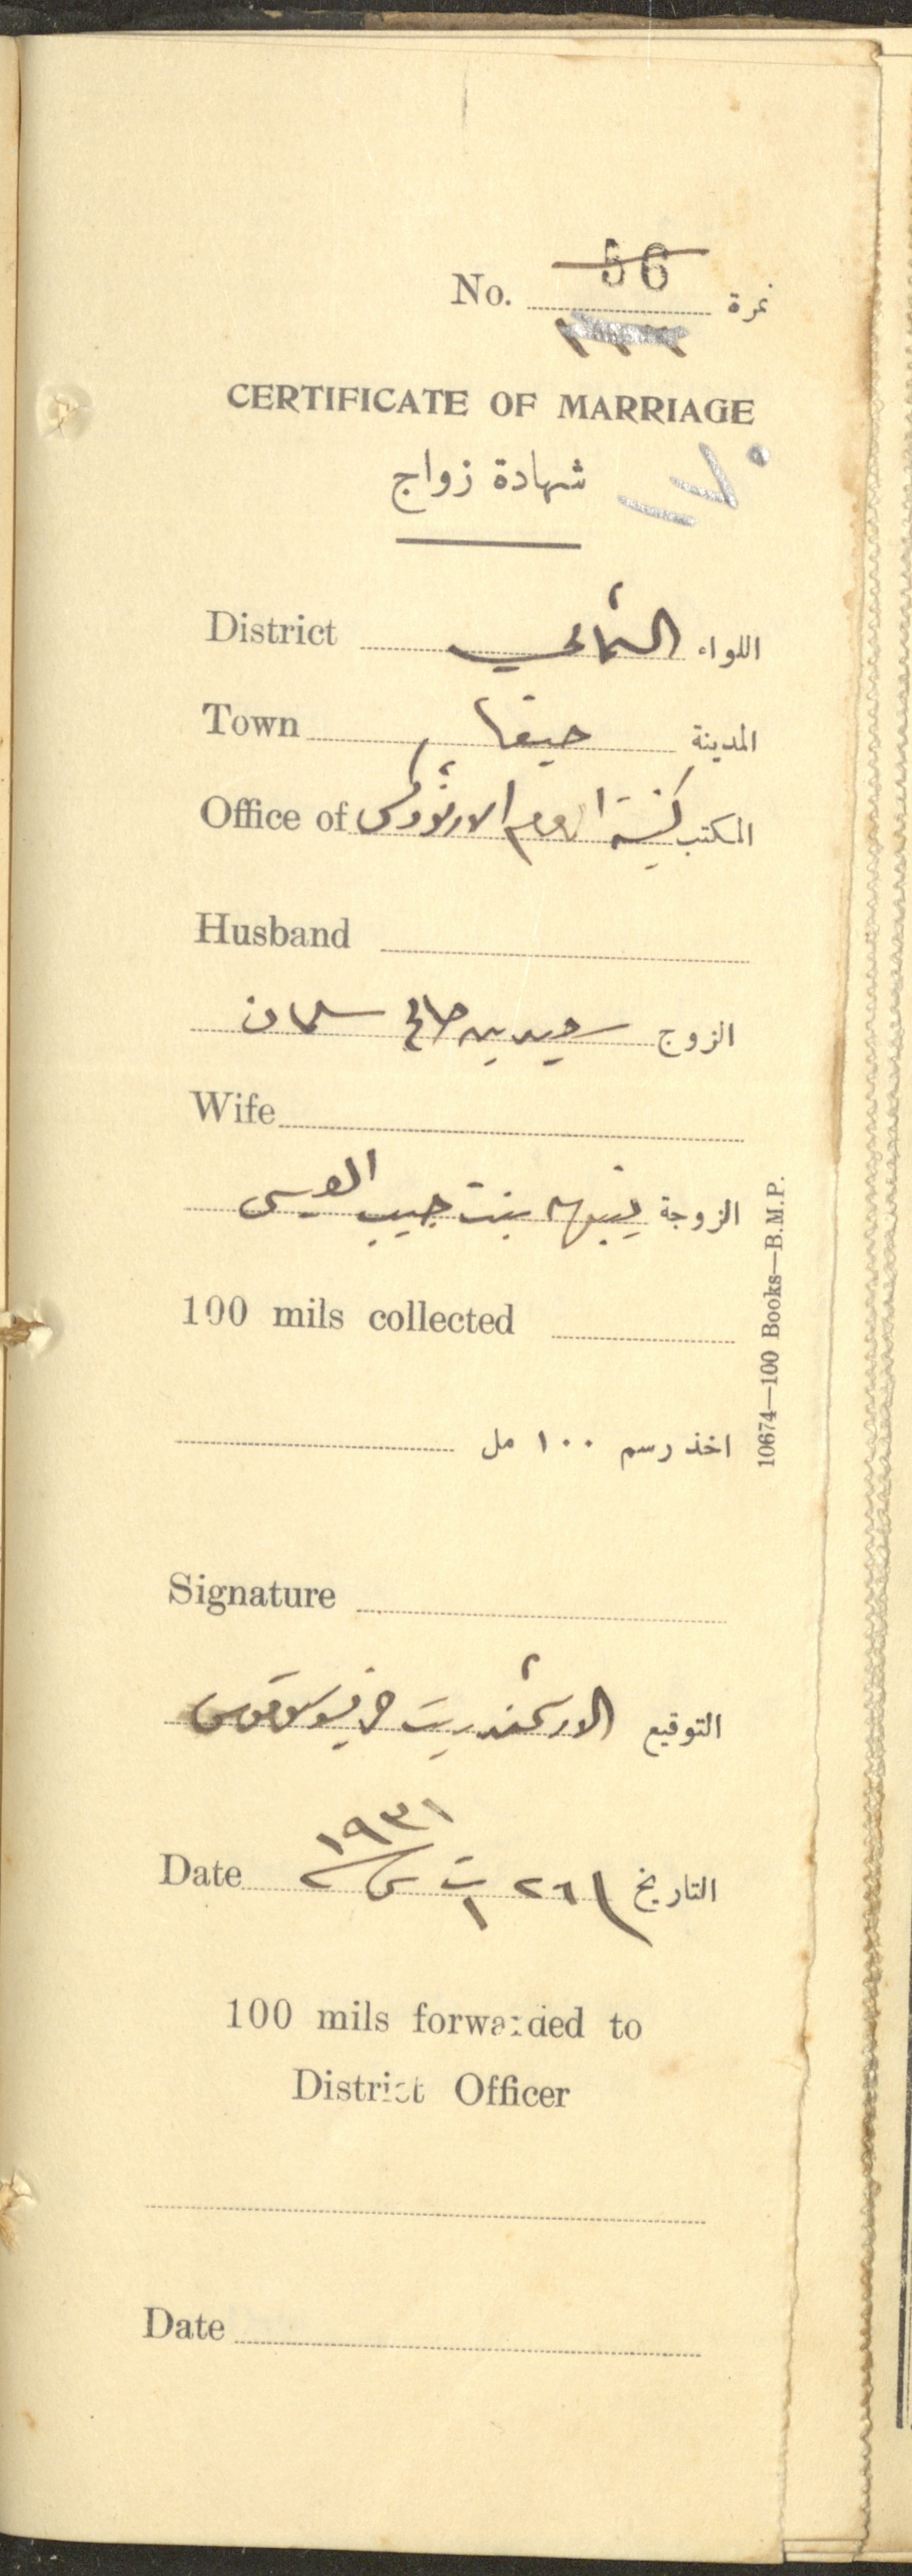 56
No. نمرة
CERTIFICATE OF MARRIAGE
شهادة زواج
District الشمالي اللواء
Town حيفا المدينة
Office of كنيسة الروم الارثوذكس المكتب
Husband
الزوج سعيد بن صالح سلمان
Wife
الزوجة بنت حبيب
100 mils collected
اخذ رسم ١٠٠ مل
Signature
التوقيع الارشمندريت
Date ١٩٣١ ٢٦ ت١ التاريخ
100 mils forwarded to
District Officer
Date
10674—100 Books—B.M.P.